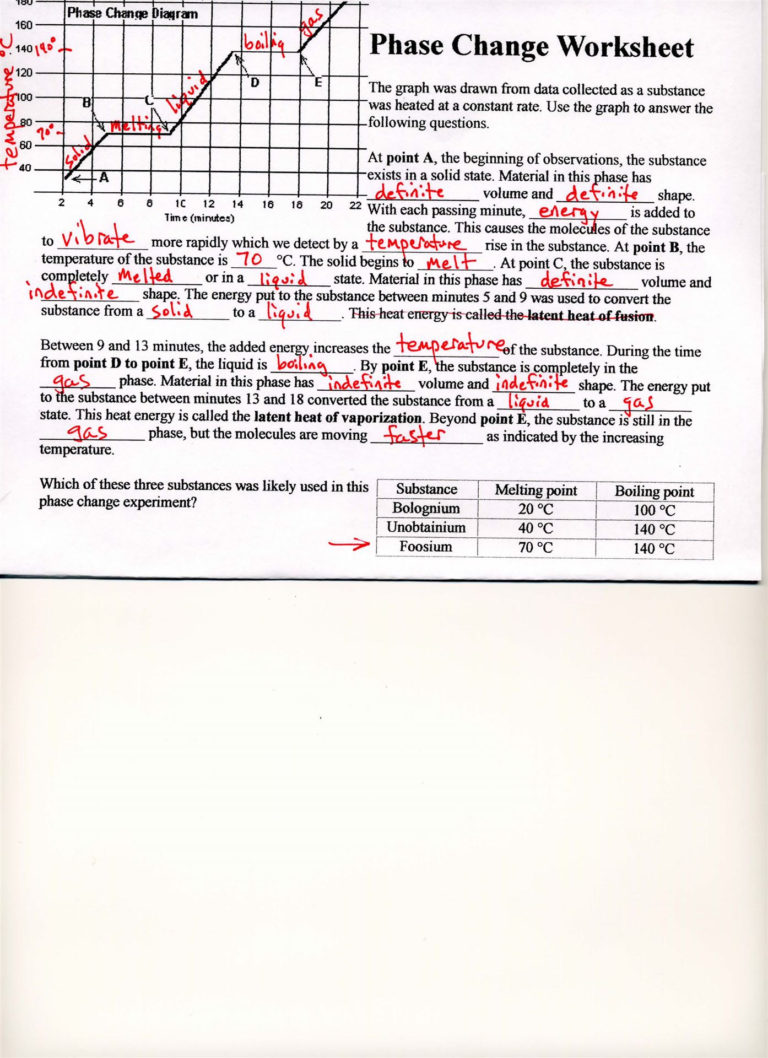 180
Phase Change Diagram
gas
160
140 140°
boiling
Phase Change Worksheet
temperature °C
120
D
E
100
B
C
liquid
80
70°
melting
60
solid
40
A
2 4 6 8 10 12 14 16 18 20 22
Time (minutes)
The graph was drawn from data collected as a substance
was heated at a constant rate. Use the graph to answer the
following questions.
At point A, the beginning of observations, the substance
exists in a solid state. Material in this phase has
definite volume and definite shape.
With each passing minute, energy is added to
the substance. This causes the molecules of the substance
to vibrate more rapidly which we detect by a temperature rise in the substance. At point B, the
temperature of the substance is 70 °C. The solid begins to melt. At point C, the substance is
completely Melted or in a liquid state. Material in this phase has definite volume and
indefinite shape. The energy put to the substance between minutes 5 and 9 was used to convert the
substance from a Solid to a liquid. This heat energy is called the latent heat of fusion.
Between 9 and 13 minutes, the added energy increases the temperature of the substance. During the time
from point D to point E, the liquid is boiling. By point E, the substance is completely in the
gas phase. Material in this phase has indefinite volume and indefinite shape. The energy put
to the substance between minutes 13 and 18 converted the substance from a liquid to a gas
state. This heat energy is called the latent heat of vaporization. Beyond point E, the substance is still in the
gas phase, but the molecules are moving faster as indicated by the increasing
temperature.
Which of these three substances was likely used in this
phase change experiment?
Substance Melting point Boiling point
Bolognium 20 °C 100 °C
Unobtainium 40 °C 140 °C
Foosium 70 °C 140 °C